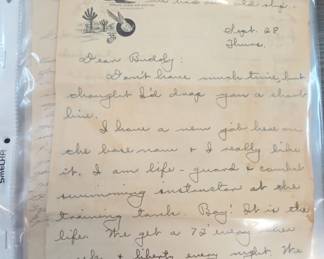 Sept. 28
Thurs.
Dear Buddy:
Don't have much time, but
thought I'd drop you a short
line.
I have a new job here on
the base now + I really like
it. I am life-guard + combat
swimming instructor at the
training tank. Boy! It is the
life. We get a 72 every
+ liberty every night. We